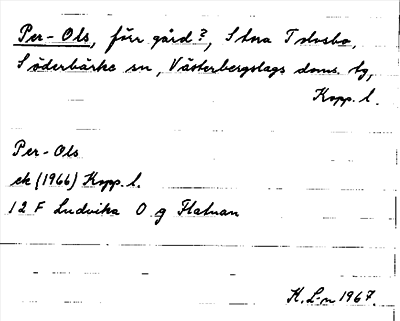 Per-Ols, förr gård?, Stora Tolvsbo,
Söderbärke sn, Västerbergslags doms. tg,
Kopp. l.
Per-Ols
ek (1966) Kopp. l.
12 F Ludvika O g Flatnan
K. L-n 1967.